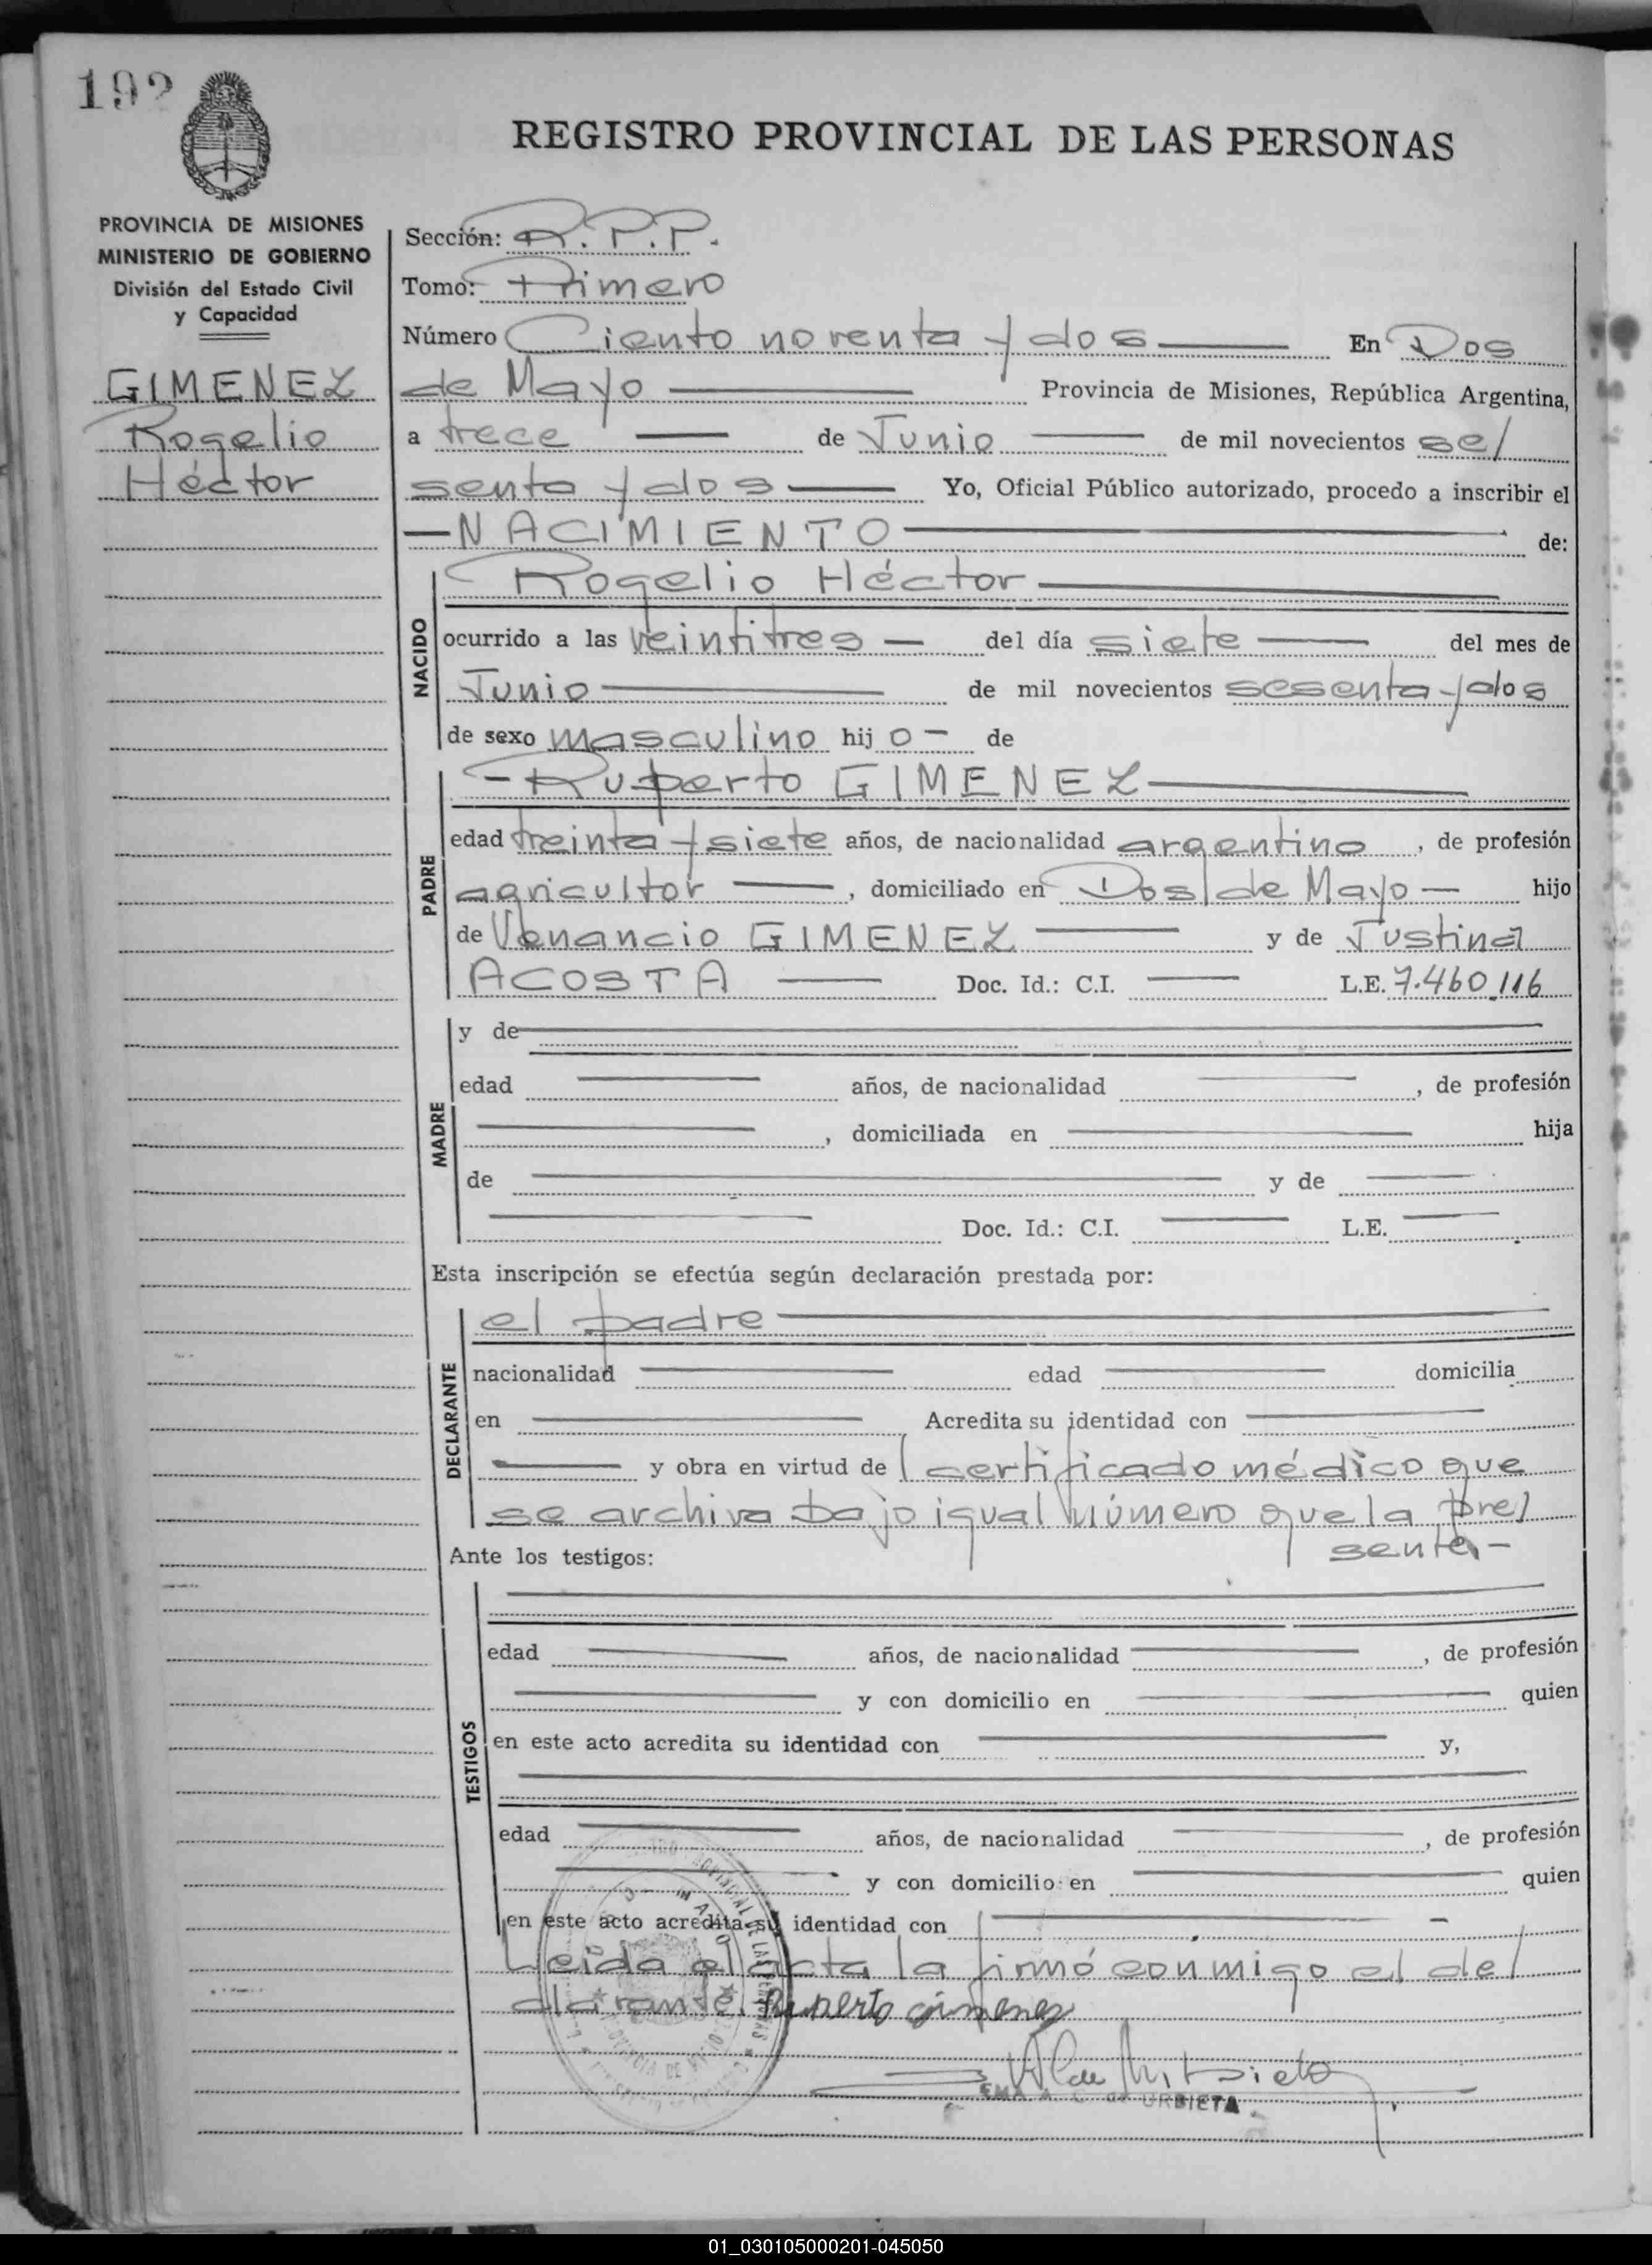 192
REGISTRO PROVINCIAL DE LAS PERSONAS
PROVINCIA DE MISIONES
MINISTERIO DE GOBIERNO
División del Estado Civil
y Capacidad
GIMENEZ
Rogelio
Héctor
Sección: R.P.P.
Tomo: Primero
Número Ciento noventa y dos En Dos
de Mayo Provincia de Misiones, República Argentina,
a trece de Junio de mil novecientos se/
senta y dos Yo, Oficial Público autorizado, procedo a inscribir el
NACIMIENTO de:
NACIDO
Rogelio Héctor
ocurrido a las veintitres del día siete del mes de
Junio de mil novecientos sesenta y dos
de sexo masculino hijo de
PADRE
Ruperto GIMENEZ
edad treinta y siete años, de nacionalidad argentino, de profesión
agricultor, domiciliado en Dos de Mayo hijo
de Venancio GIMENEZ y de Justina
ACOSTA Doc. Id.: C.I. L.E. 7.460.116
MADRE
y de
edad años, de nacionalidad , de profesión
, domiciliada en hija
de y de
Doc. Id.: C.I. L.E.
Esta inscripción se efectúa según declaración prestada por:
DECLARANTE
el padre
nacionalidad edad domicilia
en Acredita su identidad con
y obra en virtud de certificado médico que
se archiva bajo igual número que la pre/
sente.-
Ante los testigos:
TESTIGOS
edad años, de nacionalidad , de profesión
y con domicilio en quien
en este acto acredita su identidad con y,
edad años, de nacionalidad , de profesión
y con domicilio en quien
en este acto acredita su identidad con
Leida el acta la firmó conmigo el de/
clarante. Ruperto gimenez
EMA A. C. de URBIETA
01_030105000201-045050